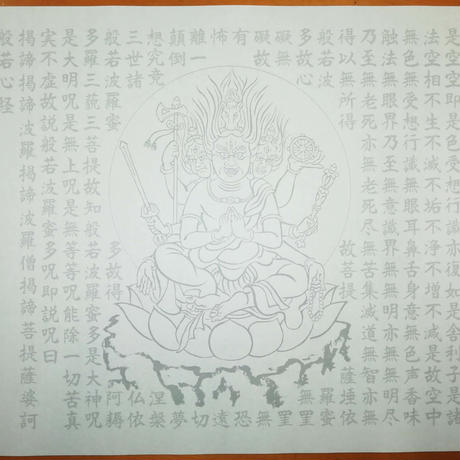 是空空即是色受想行識亦復如是舎利子是諸
法空相不生不滅不垢不浄不増不減是故空中
無色無受想行識無眼耳鼻舌身意無色声香味
触法無眼界乃至無意識界無無明亦無無明尽
乃至無老死亦無老死尽無苦集滅道無智亦無
得以無所得故菩提薩埵依
般若波羅蜜
多故心無罣
礙無罣
礙故無
有恐
怖遠
離一切
顛倒夢
想究竟涅槃
三世諸仏依
般若波羅蜜多故得阿耨
多羅三藐三菩提故知般若波羅蜜多是大神呪
是大明呪是無上呪是無等等呪能除一切苦真
実不虚故説般若波羅蜜多呪即説呪曰
掲諦掲諦波羅掲諦波羅僧掲諦菩提薩婆訶
般若心経